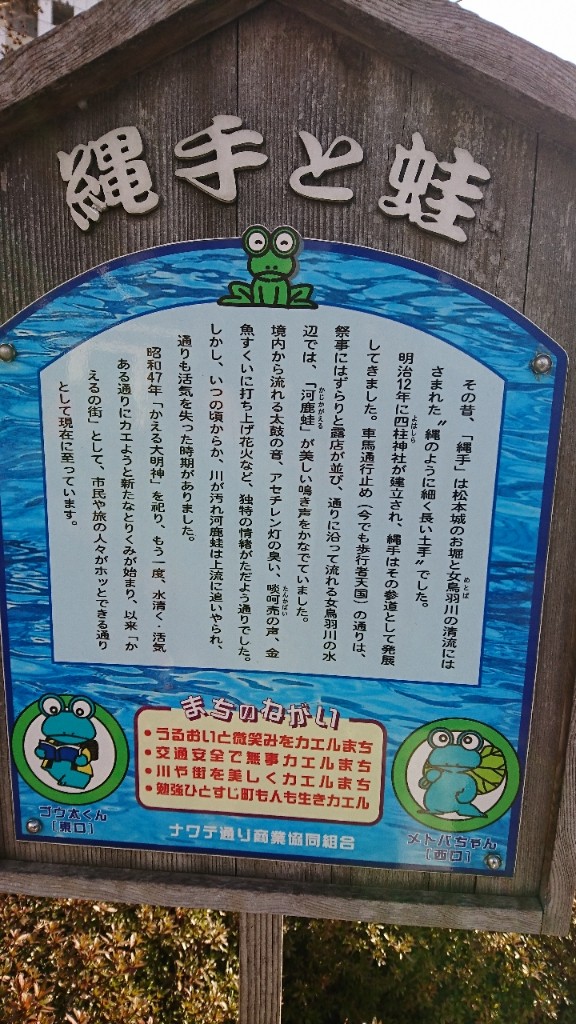 縄手と蛙
その昔、「縄手」は松本城のお堀と女鳥羽川の清流には
めとば
さまれた〝縄のように細く長い土手〟でした。
明治12年に四柱神社が建立され、縄手はその参道として発展
よはしら
してきました。車馬通行止め（今でも歩行者天国）の通りは、
祭事にはずらりと露店が並び、通りに沿って流れる女鳥羽川の水
辺では、「河鹿蛙」が美しい鳴き声をかなでていました。
かじかがえる
境内から流れる太鼓の音、アセチレン灯の臭い、啖呵売の声、金
たんかばい
魚すくいに打ち上げ花火など、独特の情緒がただよう通りでした。
しかし、いつの頃からか、川が汚れ河鹿蛙は上流に追いやられ、
通りも活気を失った時期がありました。
昭和47年「かえる大明神」を祀り、もう一度、水清く・活気
ある通りにカエようと新たなとりくみが始まり、以来「か
えるの街」として、市民や旅の人々がホッとできる通り
として現在に至っています。
まちのねがい
・うるおいと微笑みをカエルまち
・交通安全で無事カエルまち
・川や街を美しくカエルまち
・勉強ひとすじ町も人も生きカエル
ゴウ太くん
［東口］
メトバちゃん
［西口］
ナワテ通り商業協同組合